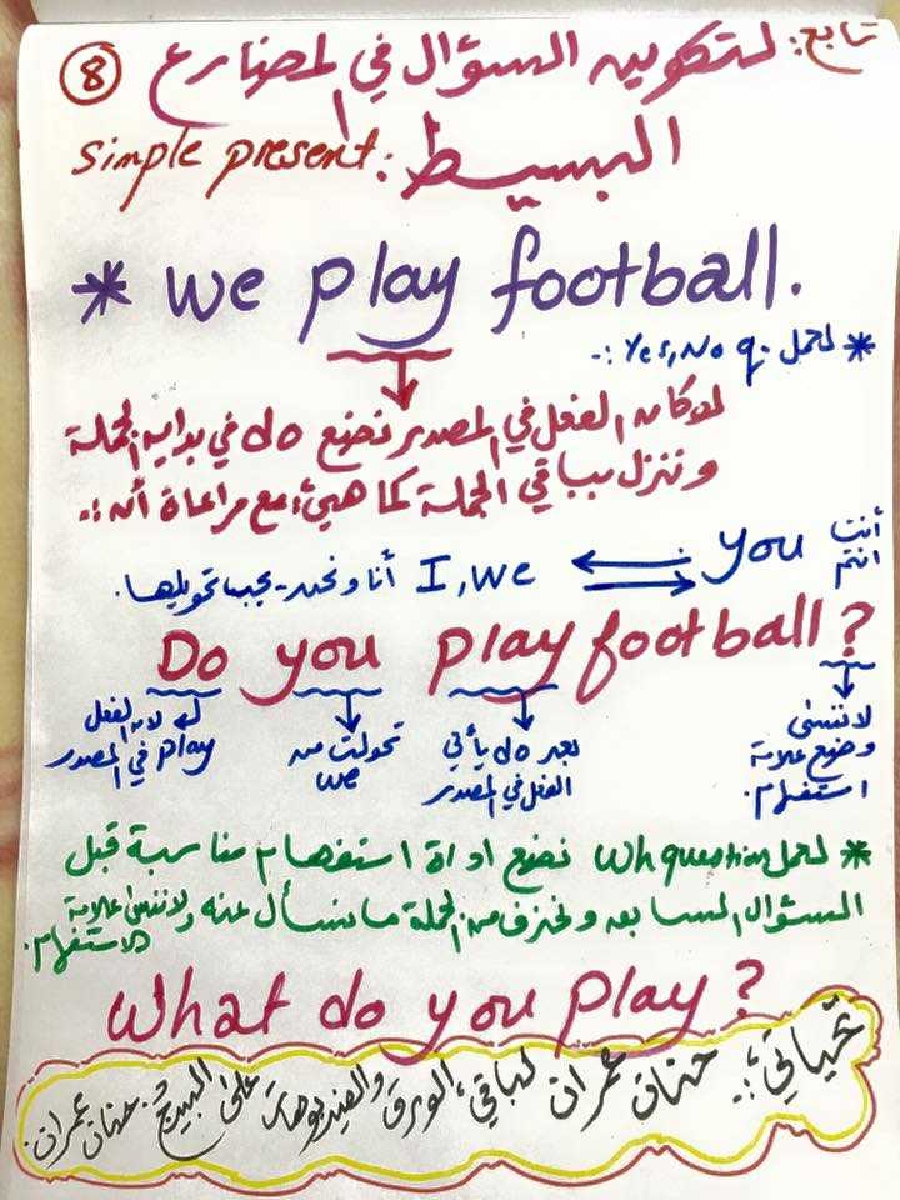 تابع: لتكوين السؤال في المضارع
8
البسيط: simple present
* we play football.
* لعمل Yes, No q. :-
لو كان الفعل في المصدر نضع do في بداية الجملة
وننزل بباقي الجملة كما هي، مع مراعاة أن :-
أنت
انتم
you ⇄ I, we أنا ونحن - يجب تحويلها.
Do you play football?
لأن الفعل play في المصدر
تحولت من we
بعد do يأتي الفعل في المصدر
لا ننسى وضع علامة استفهام.
* لعمل Wh question نضع اداة استفهام مناسبة قبل
السؤال السابق ونحذف من الجملة ما نسأل عنه ولا ننسى علامة
الاستفهام.
What do you play?
تحياتي:. حنان عمران لباقي الورق والفيديوهات على البيدج: حنان عمران.